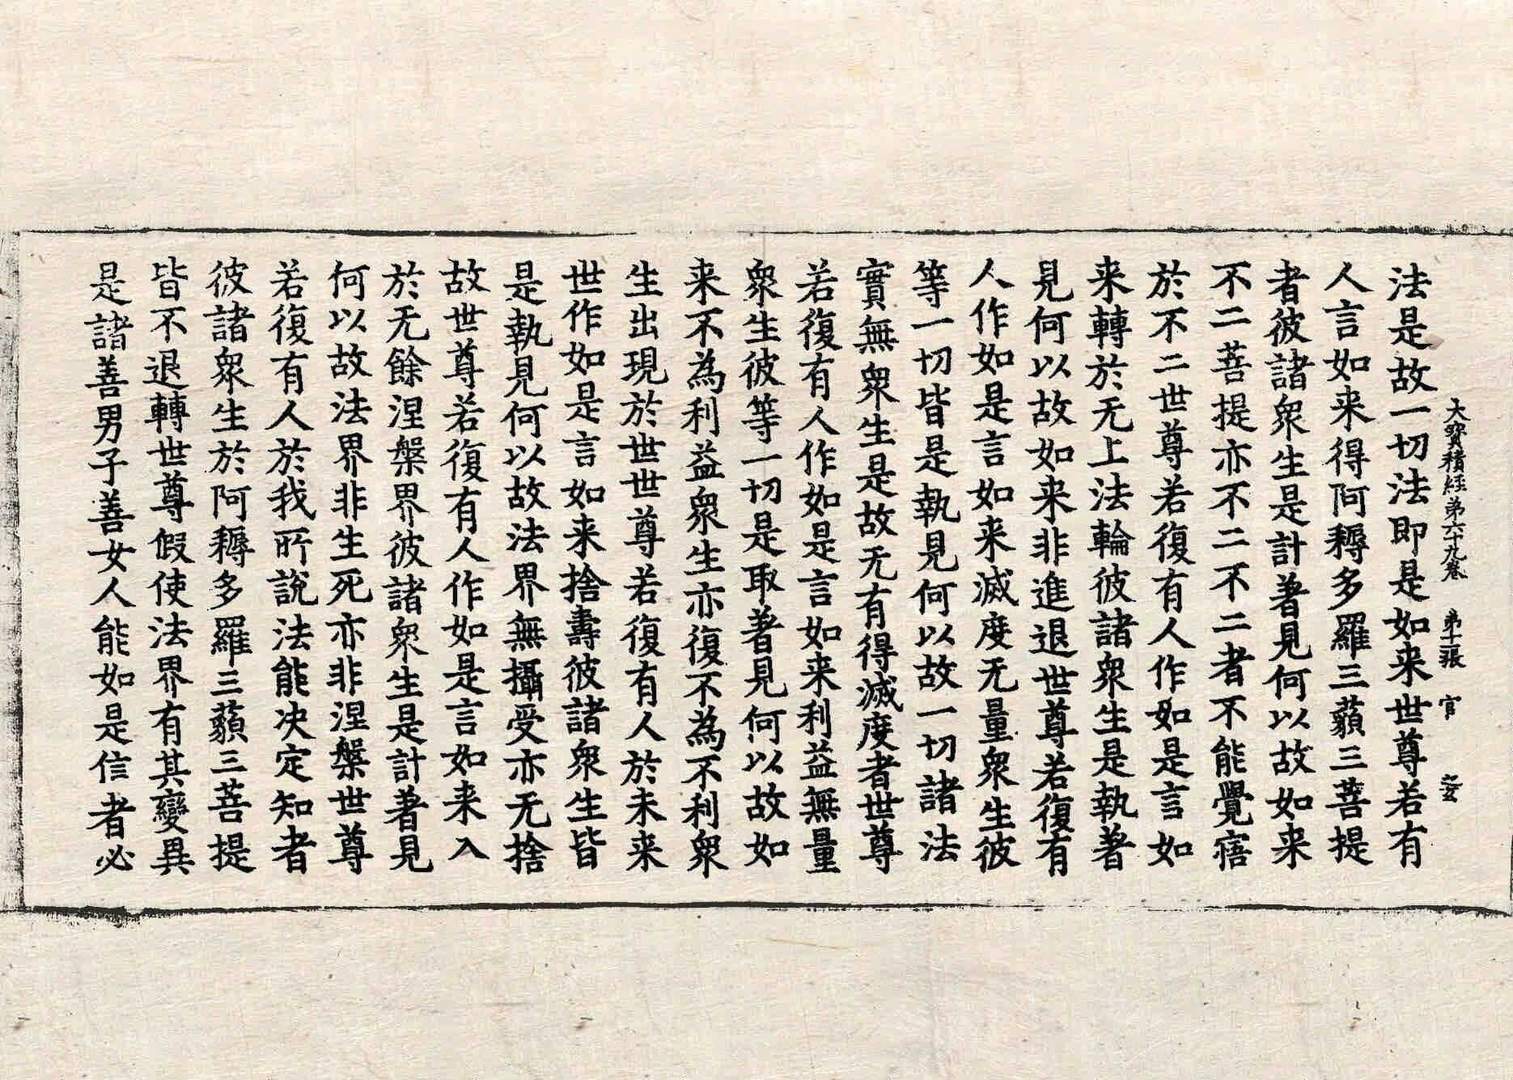 大寶積經第六十九卷 第十二張 官
法是故一切法即是如来世尊若有
人言如来得阿耨多羅三藐三菩提
者彼諸衆生是計著見何以故如来
不二菩提亦不二不二者不能覺寤
於不二世尊若復有人作如是言如
来轉於无上法輪彼諸衆生是執著
見何以故如来非進退世尊若復有
人作如是言如来滅度无量衆生彼
等一切皆是執見何以故一切諸法
實無衆生是故无有得滅度者世尊
若復有人作如是言如来利益無量
衆生彼等一切是取著見何以故如
来不為利益衆生亦復不為不利衆
生出現於世世尊若復有人於未来
世作如是言如来捨壽彼諸衆生皆
是執見何以故法界無攝受亦无捨
故世尊若復有人作如是言如来入
於无餘涅槃界彼諸衆生是計著見
何以故法界非生死亦非涅槃世尊
若復有人於我所說法能决定知者
彼諸衆生於阿耨多羅三藐三菩提
皆不退轉世尊假使法界有其變異
是諸善男子善女人能如是信者必